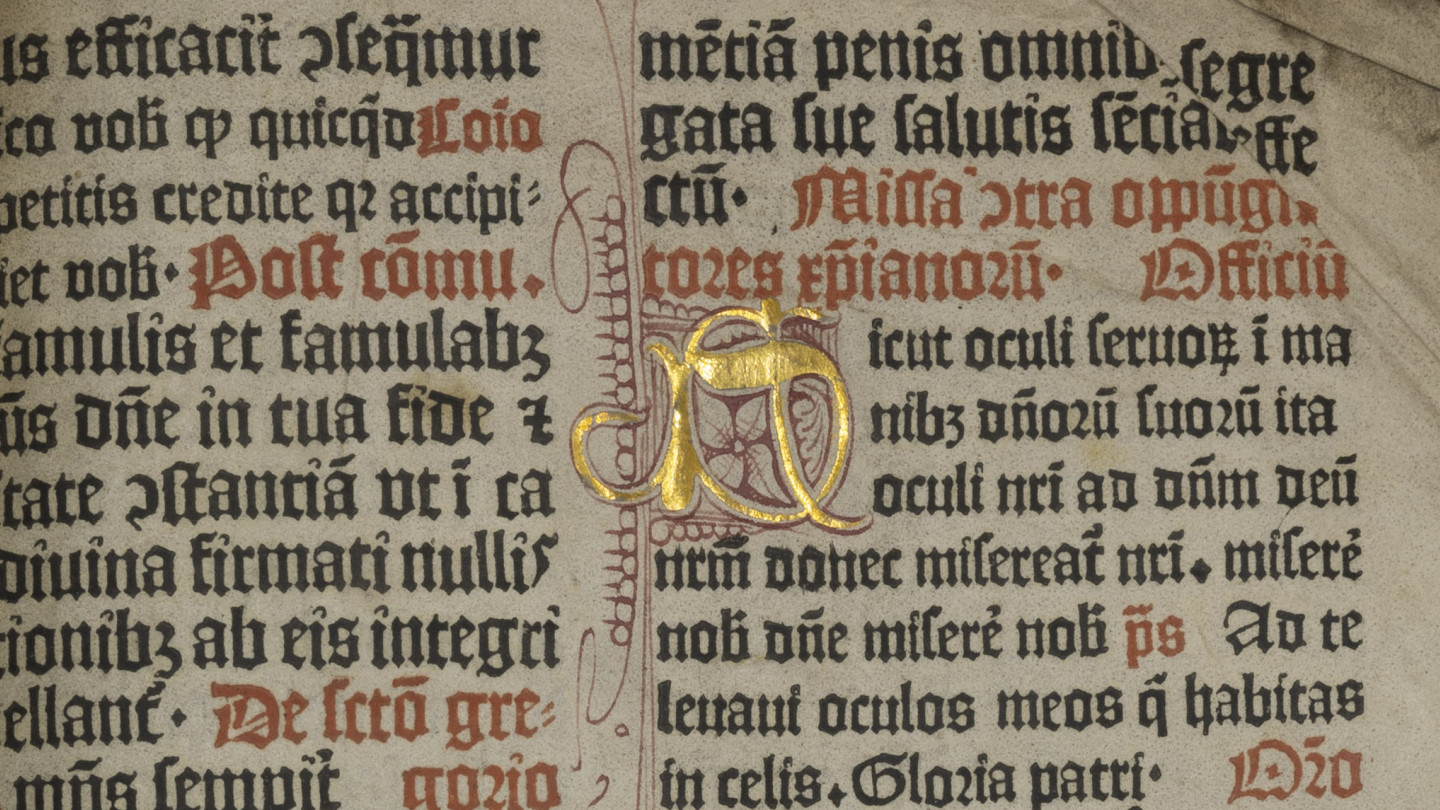 us efficacit̃ ↄseq̃mur
ico vob̃ ꝙ quicq̃d Cõio
petitis credite qꝛ accipi⸗
iet vob̃· Post cõmu.
famulis et famulabꝫ
ũs dñe in tua fide ⁊
tate ↄstantiã vt ĩ ca
diuina firmati nullis
tionibꝫ ab eis integri
ellant̃· De sctõ gre⸗
mñs sempit̃ gorio
mẽtiã penis omnibꝰ segre
gata sue salutis sẽciat effe
ctũ· Missa ↄtra oppũgna
tores xp̃ianorũ· Officiũ
icut oculi seruoꝝ ĩ ma
nibꝫ dñorũ suorũ ita
oculi nr̃i ad dñm deũ
nrm̃ donec misereat̃ nr̃i. miserẽ
nob̃ dñe miserẽ nob̃ p̃s Ad te
leuaui oculos meos q̃ habitas
in celis. Gloria patri· Oro